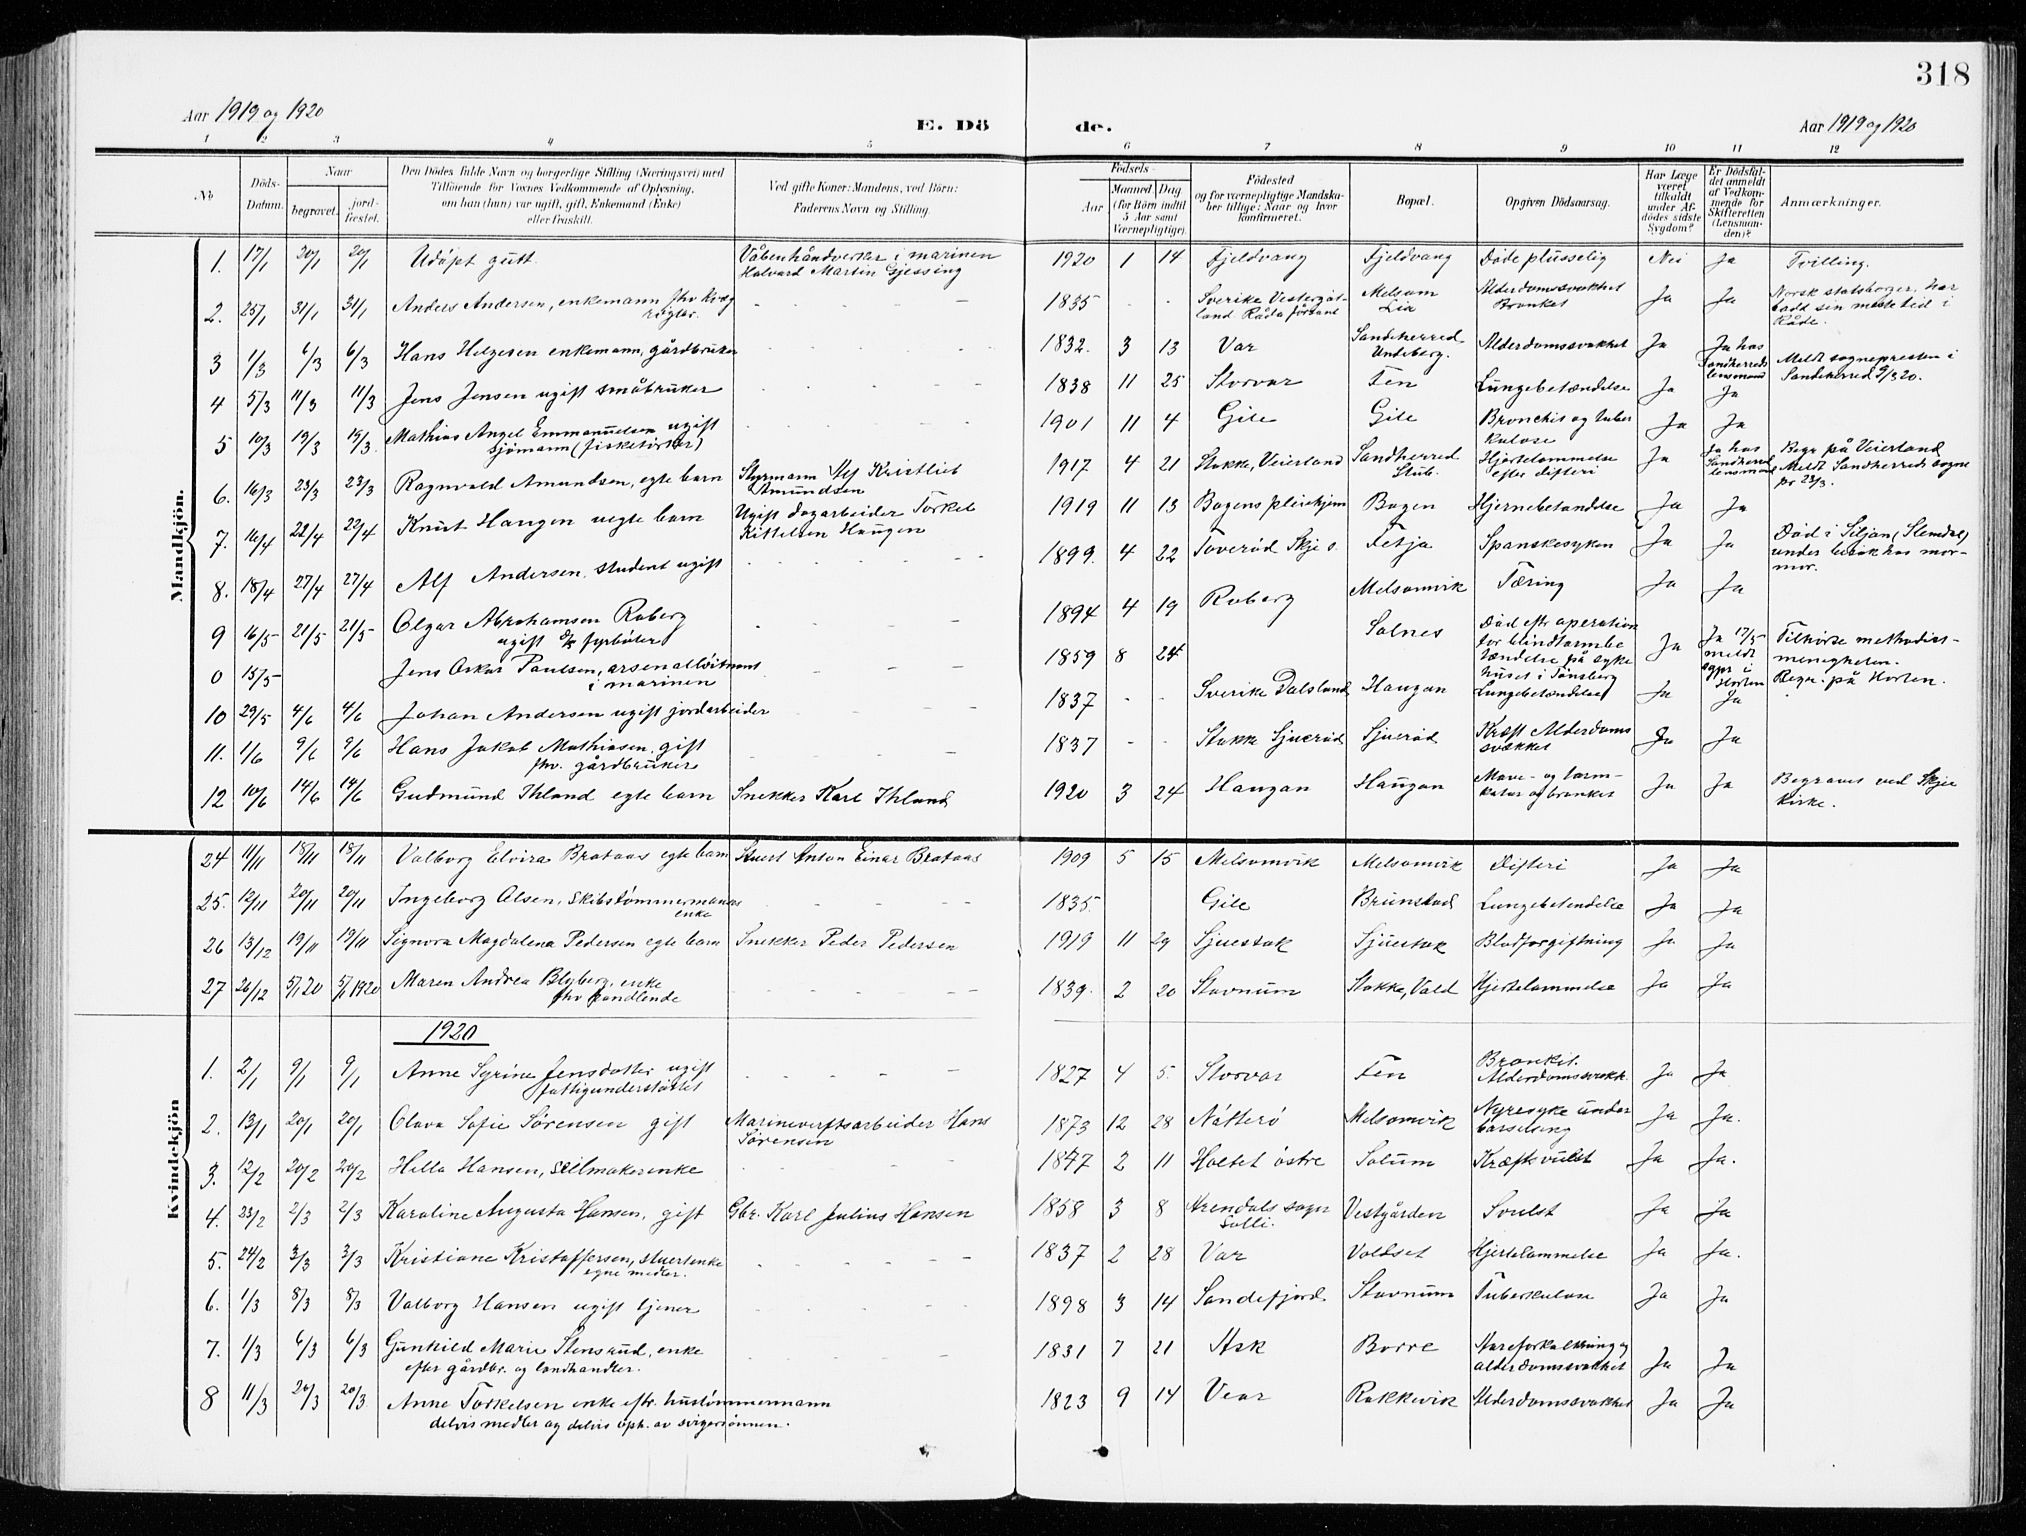 318
Aar 1919 og 1920
E. Dö
de.
Aar 1919 og 1920
1 2 3 4 5 6 7 8 9 10 11 12
No
Döds-
Datum.
Naar
begravet.
jord-
fæstet.
Den Dödes fulde Navn og borgerlige Stilling (Næringsvei) med
Tilföiende for Voxnes Vedkommende af Oplysning,
om han (hun) var ugift, gift, Enkemand (Enke)
eller fraskilt.
Ved gifte Koner: Mandens, ved Börn:
Faderens Navn og Stilling.
Födsels-
Aar
Maaned Dag
(for Börn indtil
5 Aar samt
Værnepligtige).
Födested
og for værnepligtige Mandska-
ber tillige: Naar og hvor
konfirmeret.
Bopæl.
Opgiven Dödsaarsag.
Har Læge
været
tilkaldt
under Af-
dödes sidste
Sygdom?
Er Dödsfal-
det anmeldt
af Vedkom-
mende for
Skifteretten
(Lensman-
den)?
Anmærkninger.
Mandkjön.
1. 17/1 20/1 20/1 Udöpt gutt. Våbenhåndverker i marinen
Halvard Martin Gjessing 1920 1 14 Fjeldvang Fjeldvang Döde plusselig Nei Ja Tvilling.
2. 25/1 31/1 31/1 Anders Andersen, enkemann fhv kvæg
røgter. 1835 - - Sverike Vestergöt-
land Råda församl Melsom
Lia Alderdomssvakhet
Bronkit Ja Ja Norsk statsborger, har
hadt sin meste tid i
Råde.
3 1/3 6/3 6/3 Hans Helgesen enkemann, gårdbruker 1832. 3 13 Var Sandeherred
Undeberg. Alderdomssvakhet Ja Ja hos
Sandherreds
lensmand Meldt sognepresten i
Sandeherred 9/3 20.
4 5/3 11/3 11/3 Jens Jensen ugift småbruker 1838 11 25 Storvar Fen Lungebetændelse Ja Ja
5 10/3 19/3 19/3 Mathias Angel Emmanuelsen ugift
sjömann (fisketörker) 1901 11 4 Gile Gile Bronchit og tuber
kulose Ja Ja
6. 16/3 23/3 23/3 Ragnvald Amundsen, egte barn Styrmann Alf Kristlieb
Amundsen 1917 4 21 Stokke, Veierland Sandherred
Stub. Hjertelammelse
efter difteri Ja Ja hos
Sandherred
lensmand Begr på Veierland
Meldt Sandherreds sogne
pr 23/3.
7. 16/4 22/4 22/4 Knut Haugen uegte barn Ugift dagarbeider Torkel
Kittelsen Haugen 1919 11 13 Bogens pleiehjem Bogen Hjernebetændelse Ja Ja
8. 18/4 27/4 27/4 Alf Andersen student ugift 1899. 4 22 Toveröd Skje s. Fetja Spanskesyken Ja Ja Död i Siljan (Slemdal)
under besök hos mor-
mor.
9 16/5 21/5 21/5 Olgar Abrahamsen Roberg
ugift d/s fyrböter 1894 4 19 Roberg Melsomvik Tæring Ja Ja
0 15/5 Jens Oskar Paulsen, arsenalløitnant
i marinen 1859 8 24 Solnes Död eftr operation
for blindtarmbe
tændelse på syke
huset i Tönsberg Ja Ja 17/5
meldt
sgpr i
Horten Tilhörte methodist-
menigheten.
Begr. på Horten.
10 29/5 4/6 4/6 Johan Andersen ugift jordarbeider 1837 - - Sverike Dalsland Haugan Lungebetændelse Ja Ja
11. 1/6 9/6 9/6 Hans Jakob Mathiasen gift
fhv. gårdbruker 1837 - - Stokke Sjueröd Sjueröd Kræft Alderdoms
svækket Ja Ja
12 10/6 14/6 14/6 Gudmund Ihland egte barn Snekker Karl Ihland 1920 3 24 Haugan Haugan Mave- og tarm-
katar og bronkit Ja Ja Begravet ved Skjee
kirke.
Kvindekjön
24 11/11 18/11 18/11 Valborg Elvira Brataas egte barn Stuert Anton Einar Brataas 1909 5 15 Melsomvik Melsomvik Difteri Ja Ja
25. 12/11 20/11 20/11 Ingeborg Olsen, Skibstömmermanns
enke 1835. Gile Brunstad Lungebetendelse Ja Ja
26 13/12 19/11 19/11 Signora Magdalena Pedersen egte barn Snekker Peder Pedersen 1919 11 29 Sjuestok Sjuestok Blodforgiftning Ja Ja
27 26/12 5/1 20 5/1 1920 Maren Andrea Blyberg, enke
fhv handlende 1839. 2 20 Stavnum Stokke, Vald Hjertelammelse Ja Ja
1920
1. 2/1 9/1 9/1 Anne Syrine Jensdatter ugift
fattigunderstöttet 1827 4 5. Storvar Fen Bronkit.
Alderdomssvakh. Ja Ja
2. 13/1 20/1 20/1 Olava Sofie Sörensen gift Marineverftsarbeider Hans
Sörensen 1873 12 28 Nötterö Melsomvik Nyresyke under
barselseng Ja Ja.
3. 12/2 20/2 20/2 Hella Hansen, seilmakerenke 1847 2 11 Holtet östre Solum Kræftsvulst Ja Ja.
4. 23/2 2/3 2/3 Karoline Augusta Hansen, gift Gbr. Karl Julius Hansen 1858 3 8 Arendals sogn
Solli. Vestgården Svulst Ja Ja
5. 24/2 3/3 3/3 Kristiane Kristoffersen, stuertenke
egne medler. 1837 2 28 Var Voldset Hjertelammelse Ja Ja.
6. 1/3 8/3 8/3 Valborg Hansen ugift tjener 1898 3 14 Sandefjord Stavnum Tuberkulose Ja Ja
7. 1/3 6/3 6/3 Gunhild Marie Stensrud, enke
efter gårdbr. og landhandler. 1831 7 21 Ask Borre Aareforkalkning og
alderdomssvakhet Ja Ja
8 11/3 20/3 20/3 Anne Torkelsen enke eftr. hustömmermann
delvis medler og delvis oph. av svigersönnen. 1823 9 14 Vear Rakkevik Alderdomssvakhet Ja Ja